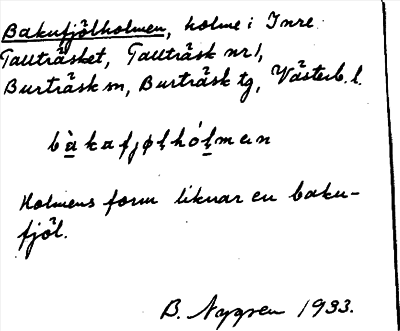 Bakufjölholmen, holme i Inre
Tallträsket, Tallträsk nr 1,
Burträsk sn, Burträsk tg, Västerb. l.
bàkafjøḷhóḷmen
Holmens form liknar en baku-
fjöl.
B. Nygren 1933.